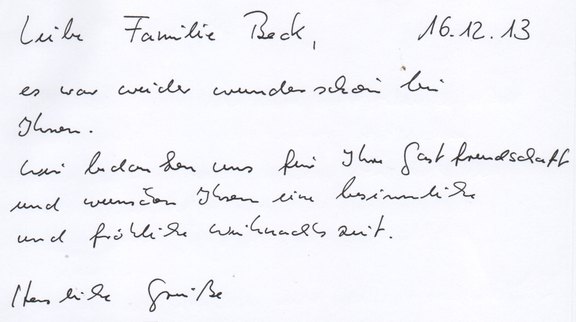 Liebe Familie Beck, 16.12.13
es war wieder wunderschön bei
Ihnen.
Wir bedanken uns für Ihre Gastfreundschaft
und wünschen Ihnen eine besinnliche
und fröhliche Weihnachtszeit.
Herzliche Grüße